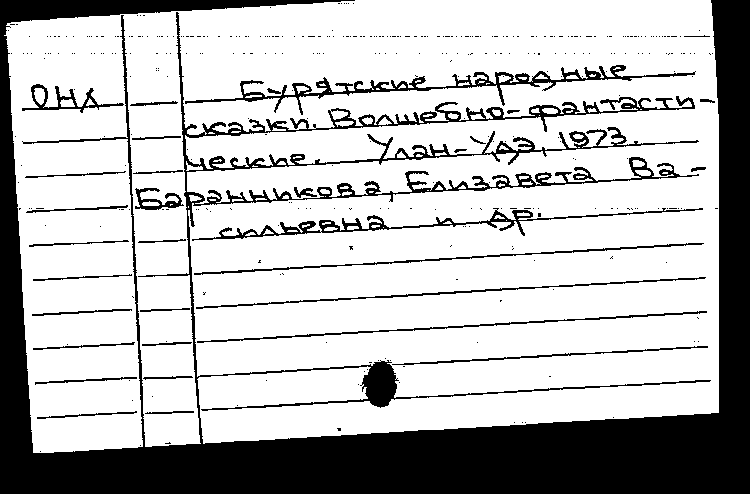 ОНЛ Бурятские народные
сказки. Волшебно-фантасти-
ческие. Улан-Удэ, 1973.
Баранникова, Елизавета Ва-
сильевна и др.